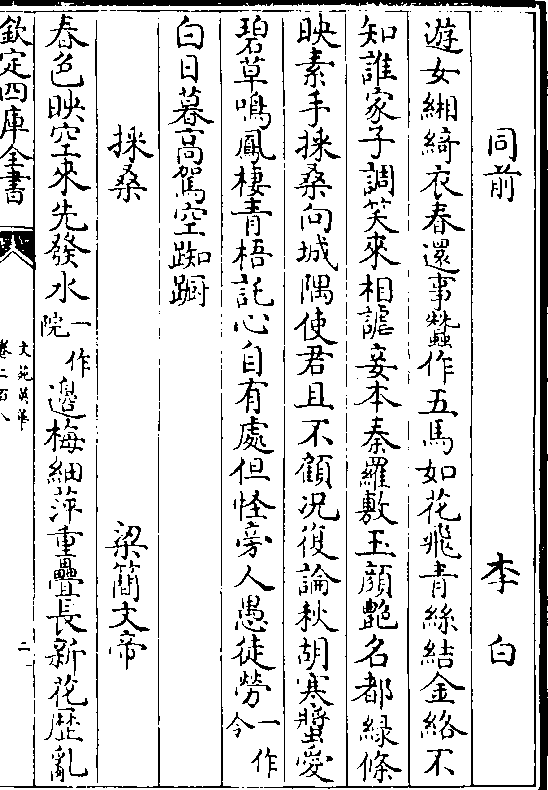 同前　李白
遊女緗綺衣春還事蠶作五馬如花飛青絲結金絡不
知誰家子調笑來相謔妾本秦羅敷玉顔艶名都緑條
映素手採桑向城隅使君且不顧况復論秋胡寒螿愛
碧草鳴鳳棲青梧託心自有處但怪旁人愚徒勞一作令
白日暮高駕空踟蹰
採桑　梁簡文帝
春色映空來先發水一作院邉梅細萍重疊長新花歴亂
欽定四庫全書
文苑英華
卷二百八
二